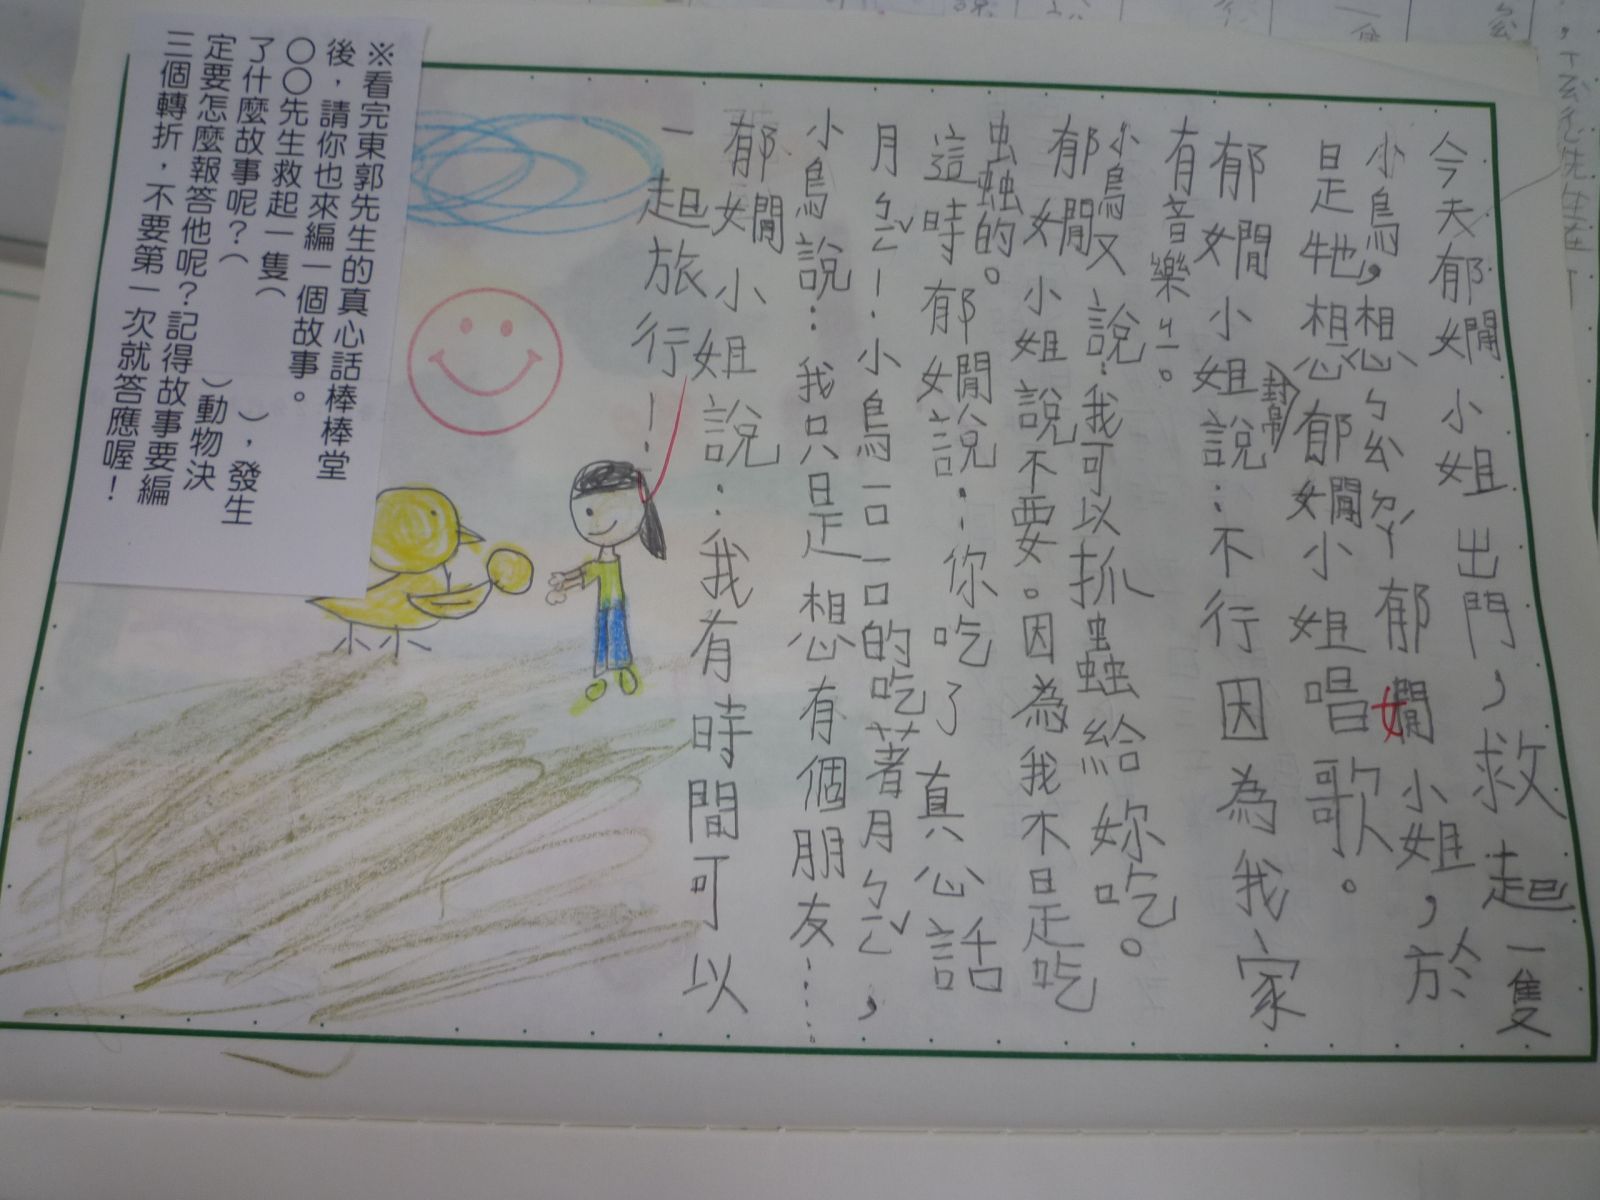 今天郁嫺小姐出門，救起一隻
小鳥，想ㄅㄠㄉㄚˊ郁嫺小姐，於
是牠想郁嫺小姐唱歌。
郁嫺小姐說：不行因為我家
有音樂ㄐㄧ。
小鳥又說：我可以抓蟲蟲給妳吃。
郁嫺小姐說不要。因為我不是吃
蟲蟲的。
這時郁嫺說：你吃了真心話
月ㄅㄧㄥˇ！小鳥一口一口的吃著月ㄅㄧㄥˇ，
小鳥說：我只是想有個朋友……
郁嫺小姐說：我有時間可以
一起旅行！
※看完東郭先生的真心話棒棒堂
後，請你也來編一個故事。
○○先生救起一隻（　　　），發生
了什麼故事呢？（　　　）動物決
定要怎麼報答他呢？記得故事要編
三個轉折，不要第一次就答應喔！